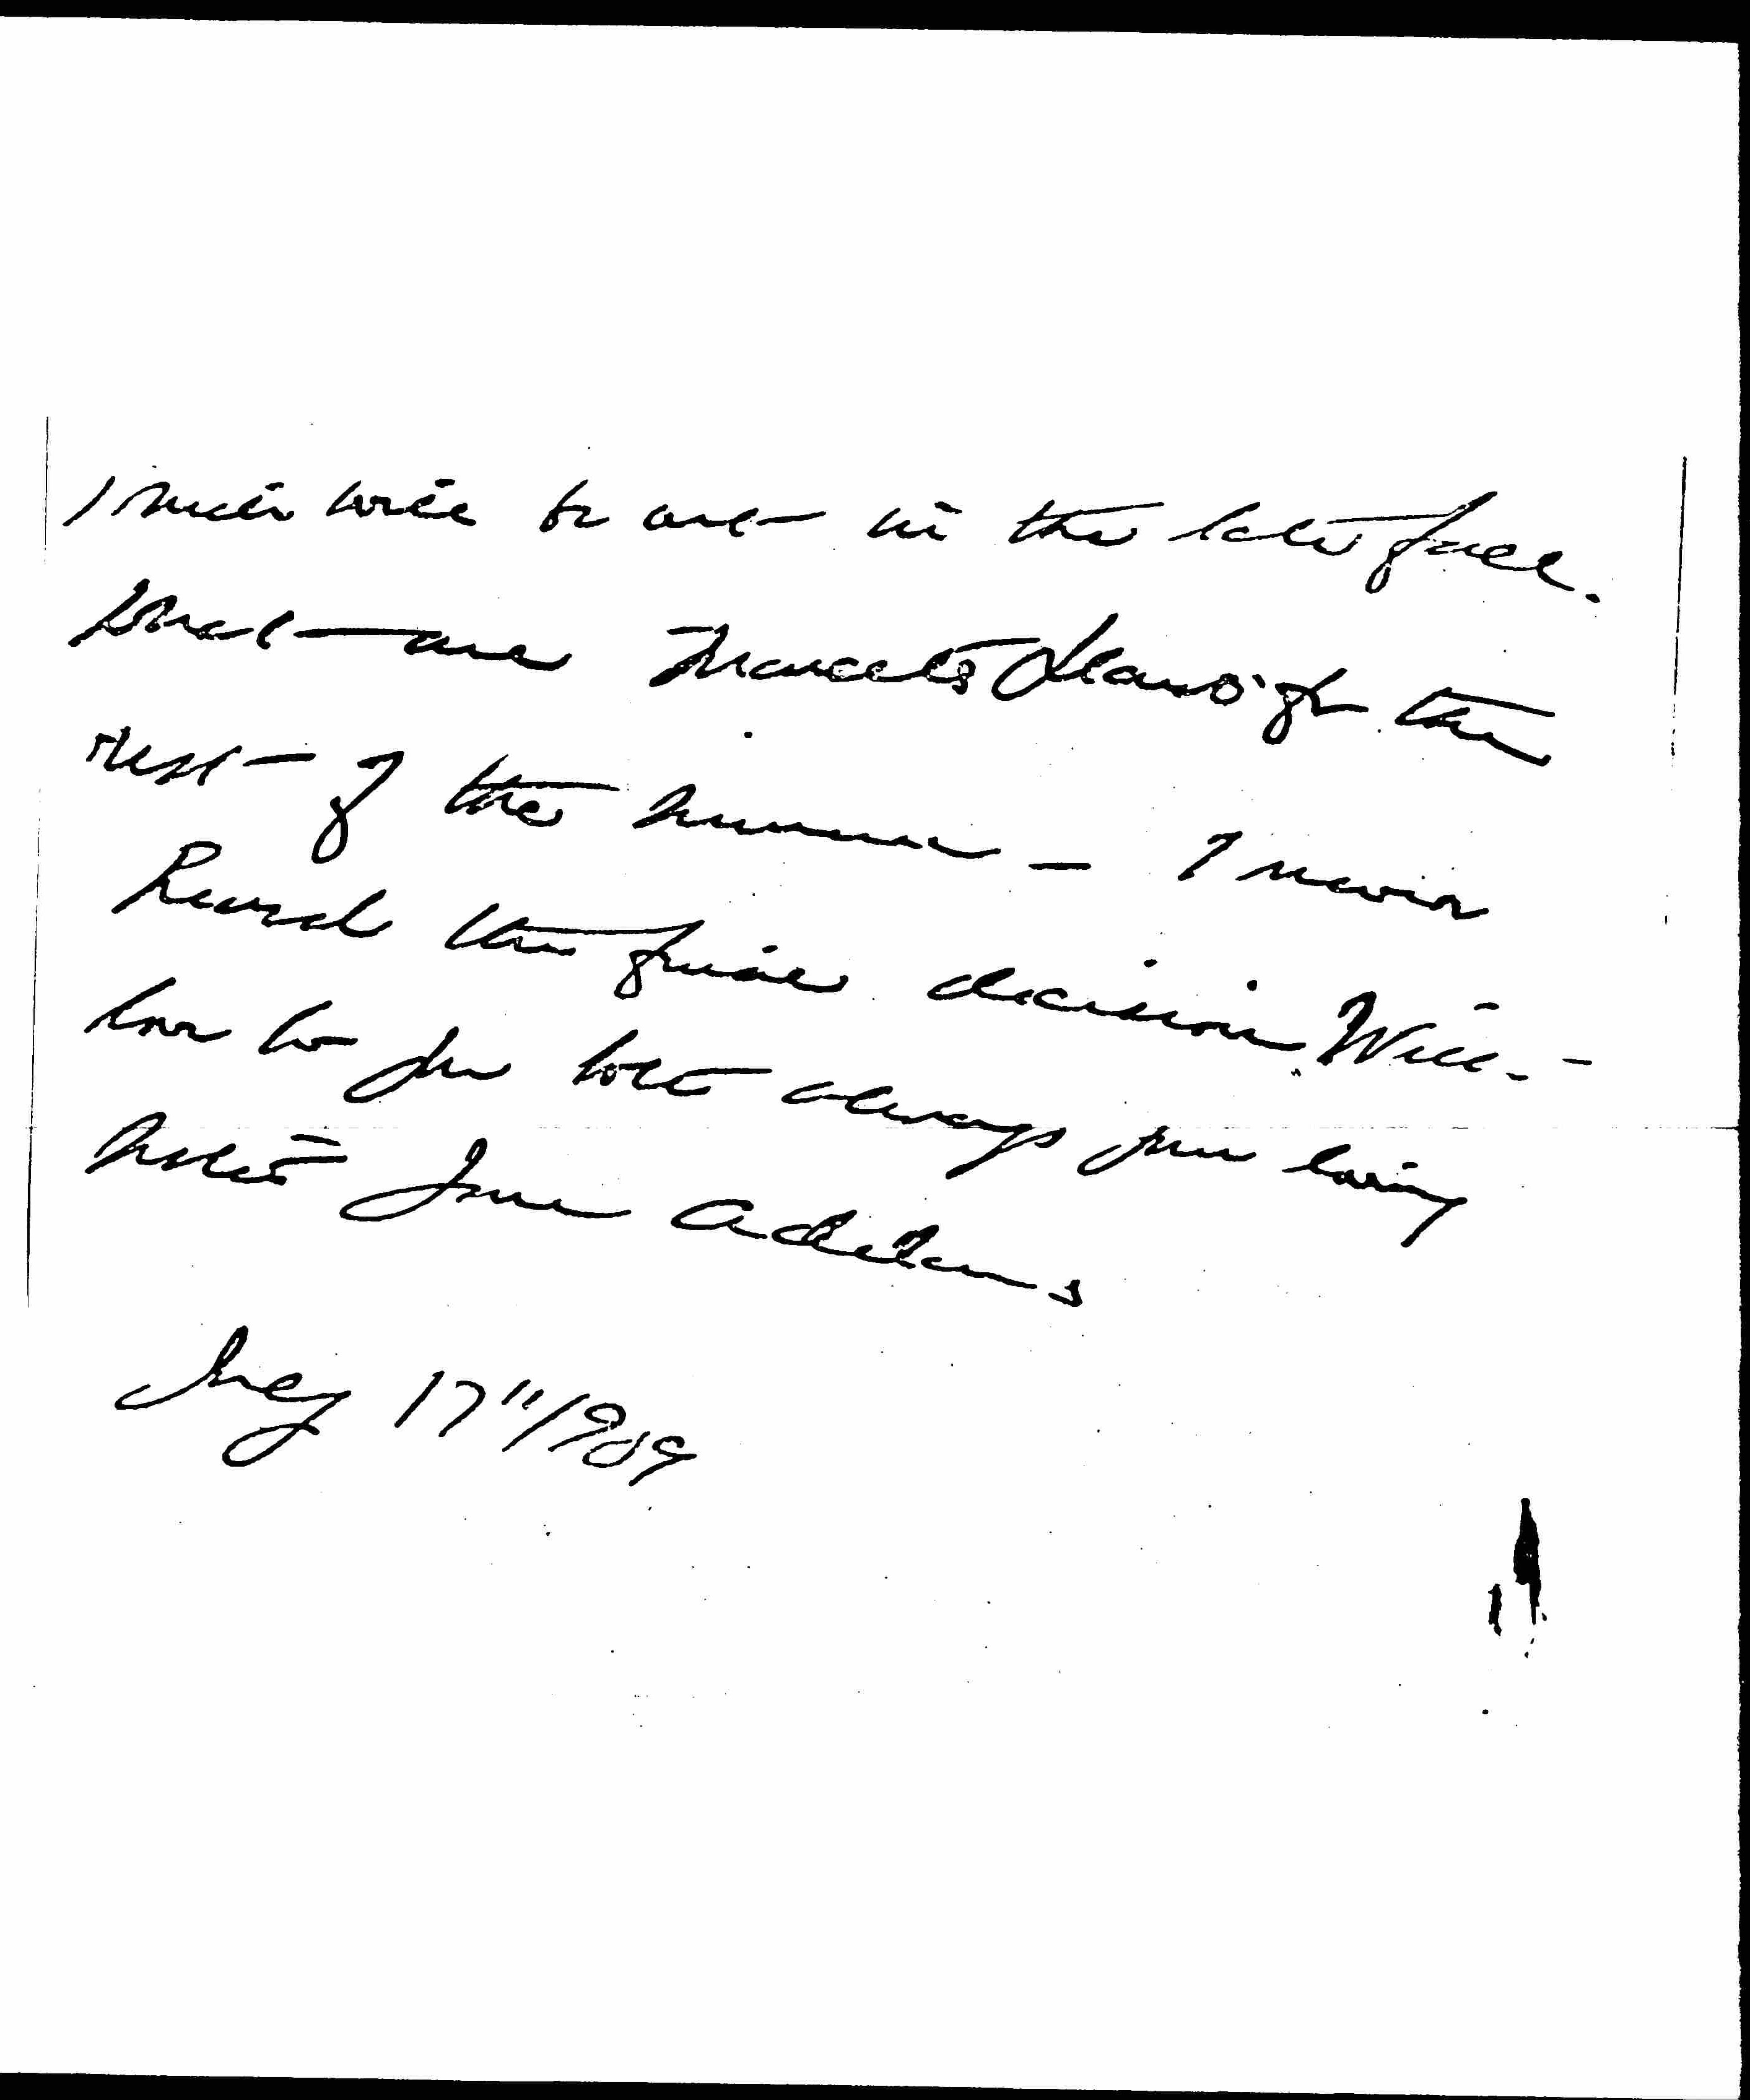 which will be out in the late fall.
What are Marcet's plans for the
rest of the summer – I never
heard the final decision. With –
love to you both always your loving
sister Jane Addams
July 17" 1909